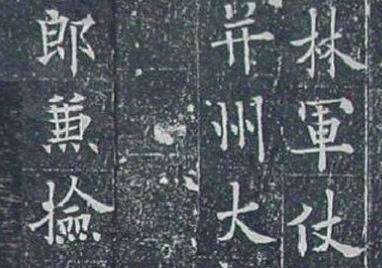 林軍仗
并州大
郎兼撿